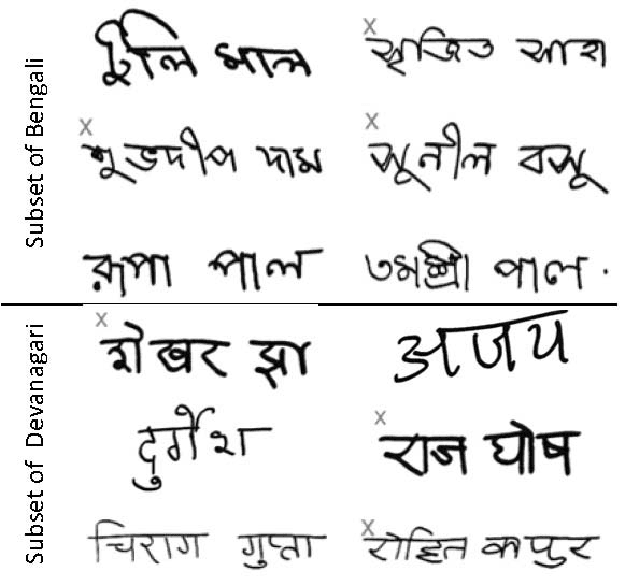 Subset of Bengali
টুলি
x সৃজিত
x শূভদীপ দাস
x সূনীল বসূ
রূপা পাল
পাল .
Subset of Devanagari
x शेखर झा
अजय
दुर्गेश
x राज घोष
चिराग गुप्ता
x रोहित कपुर